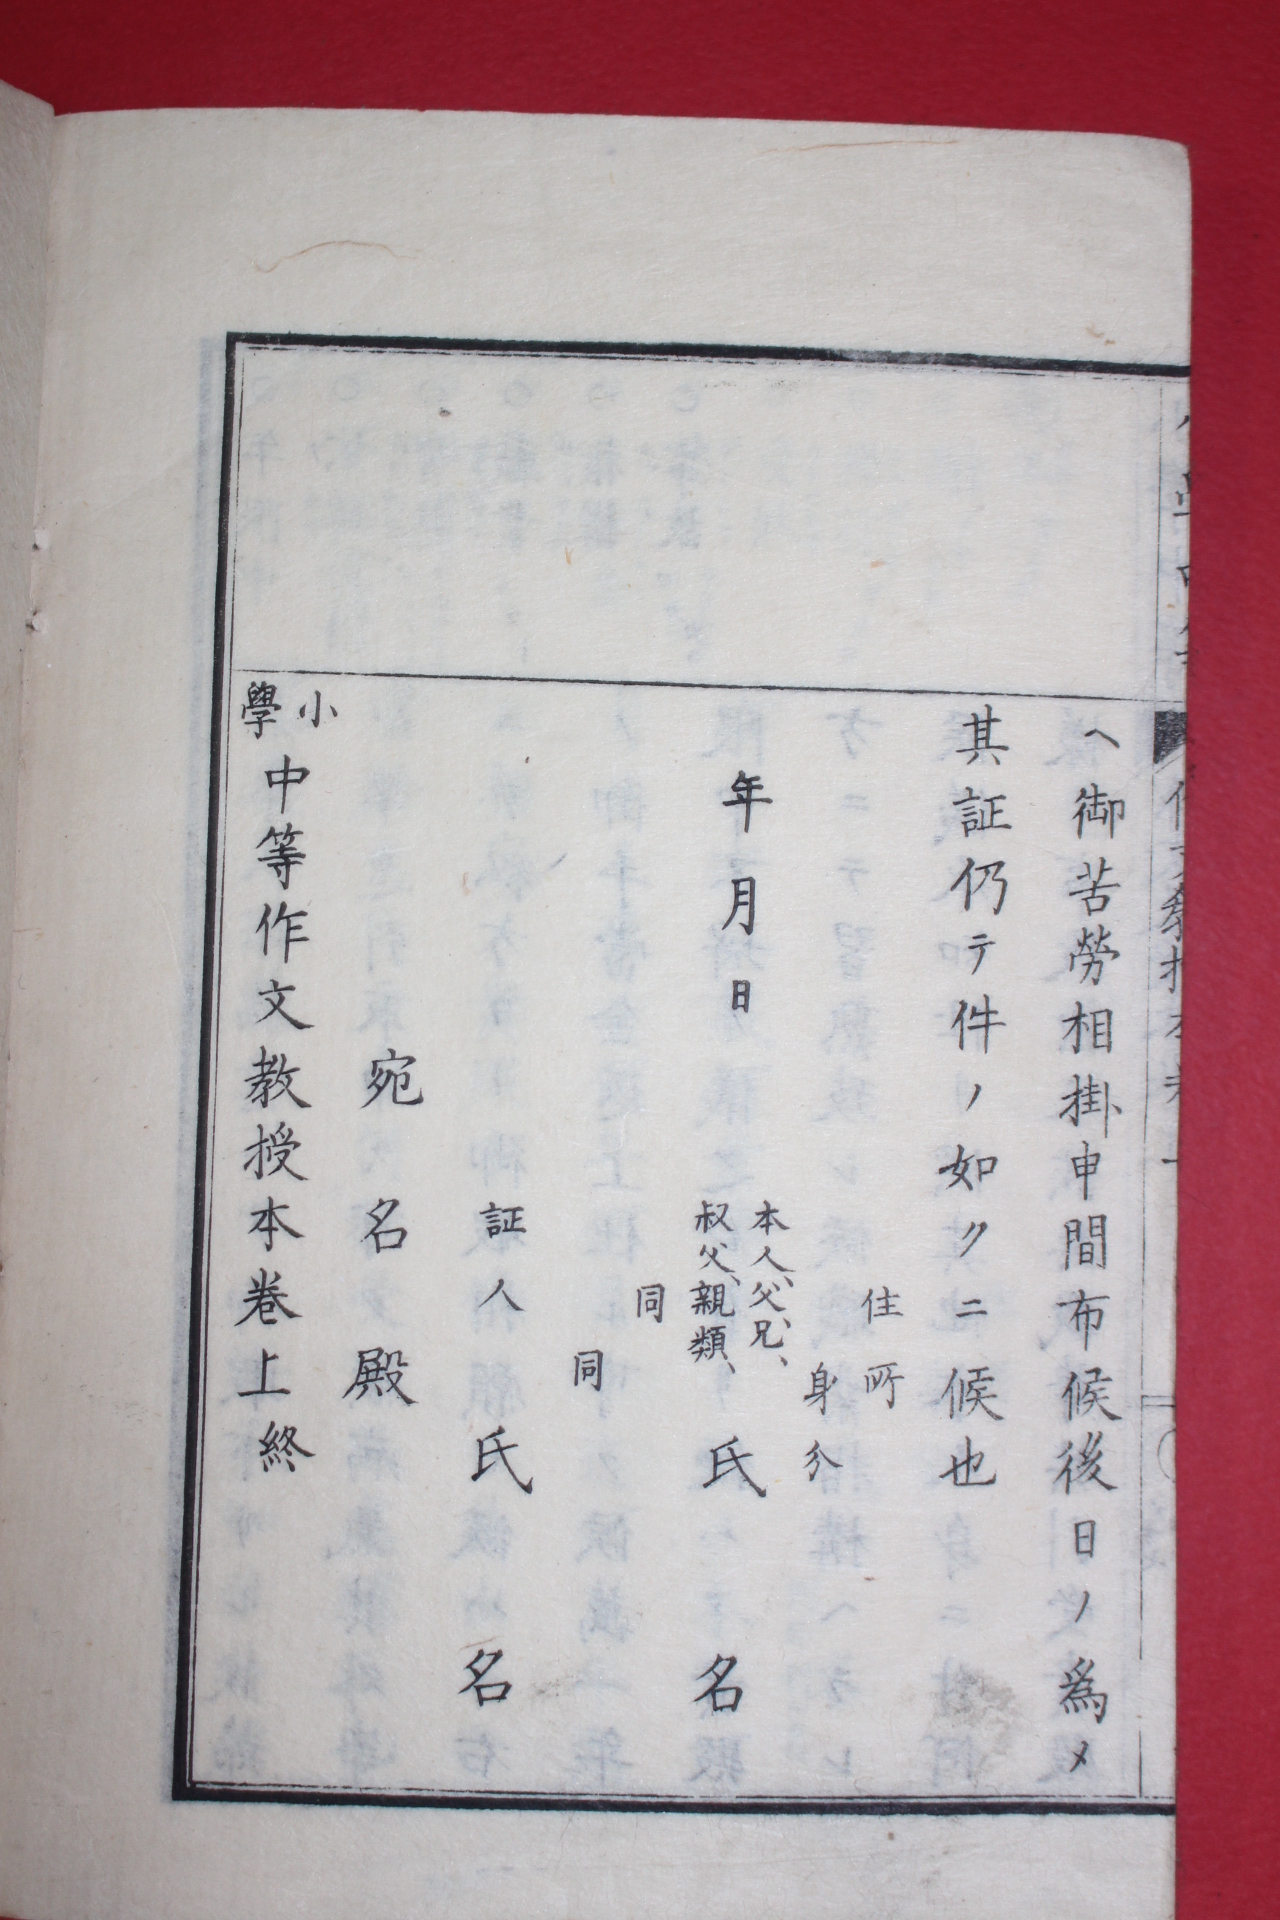 ヘ御苦勞相掛申間布候後日ノ爲メ
其証仍テ件ノ如クニ候也
住所
身分
年月日
本人、父兄、
叔父、親類、
氏名
同
同
証人氏名
宛名殿
小學
中等作文教授本卷上終